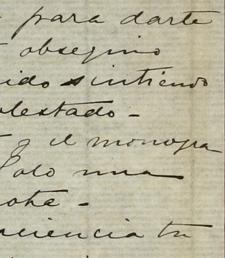 para darte
obsequio
ido sintiendo
olestado -
y el monogra
Solo una
oche -
ciencia tu